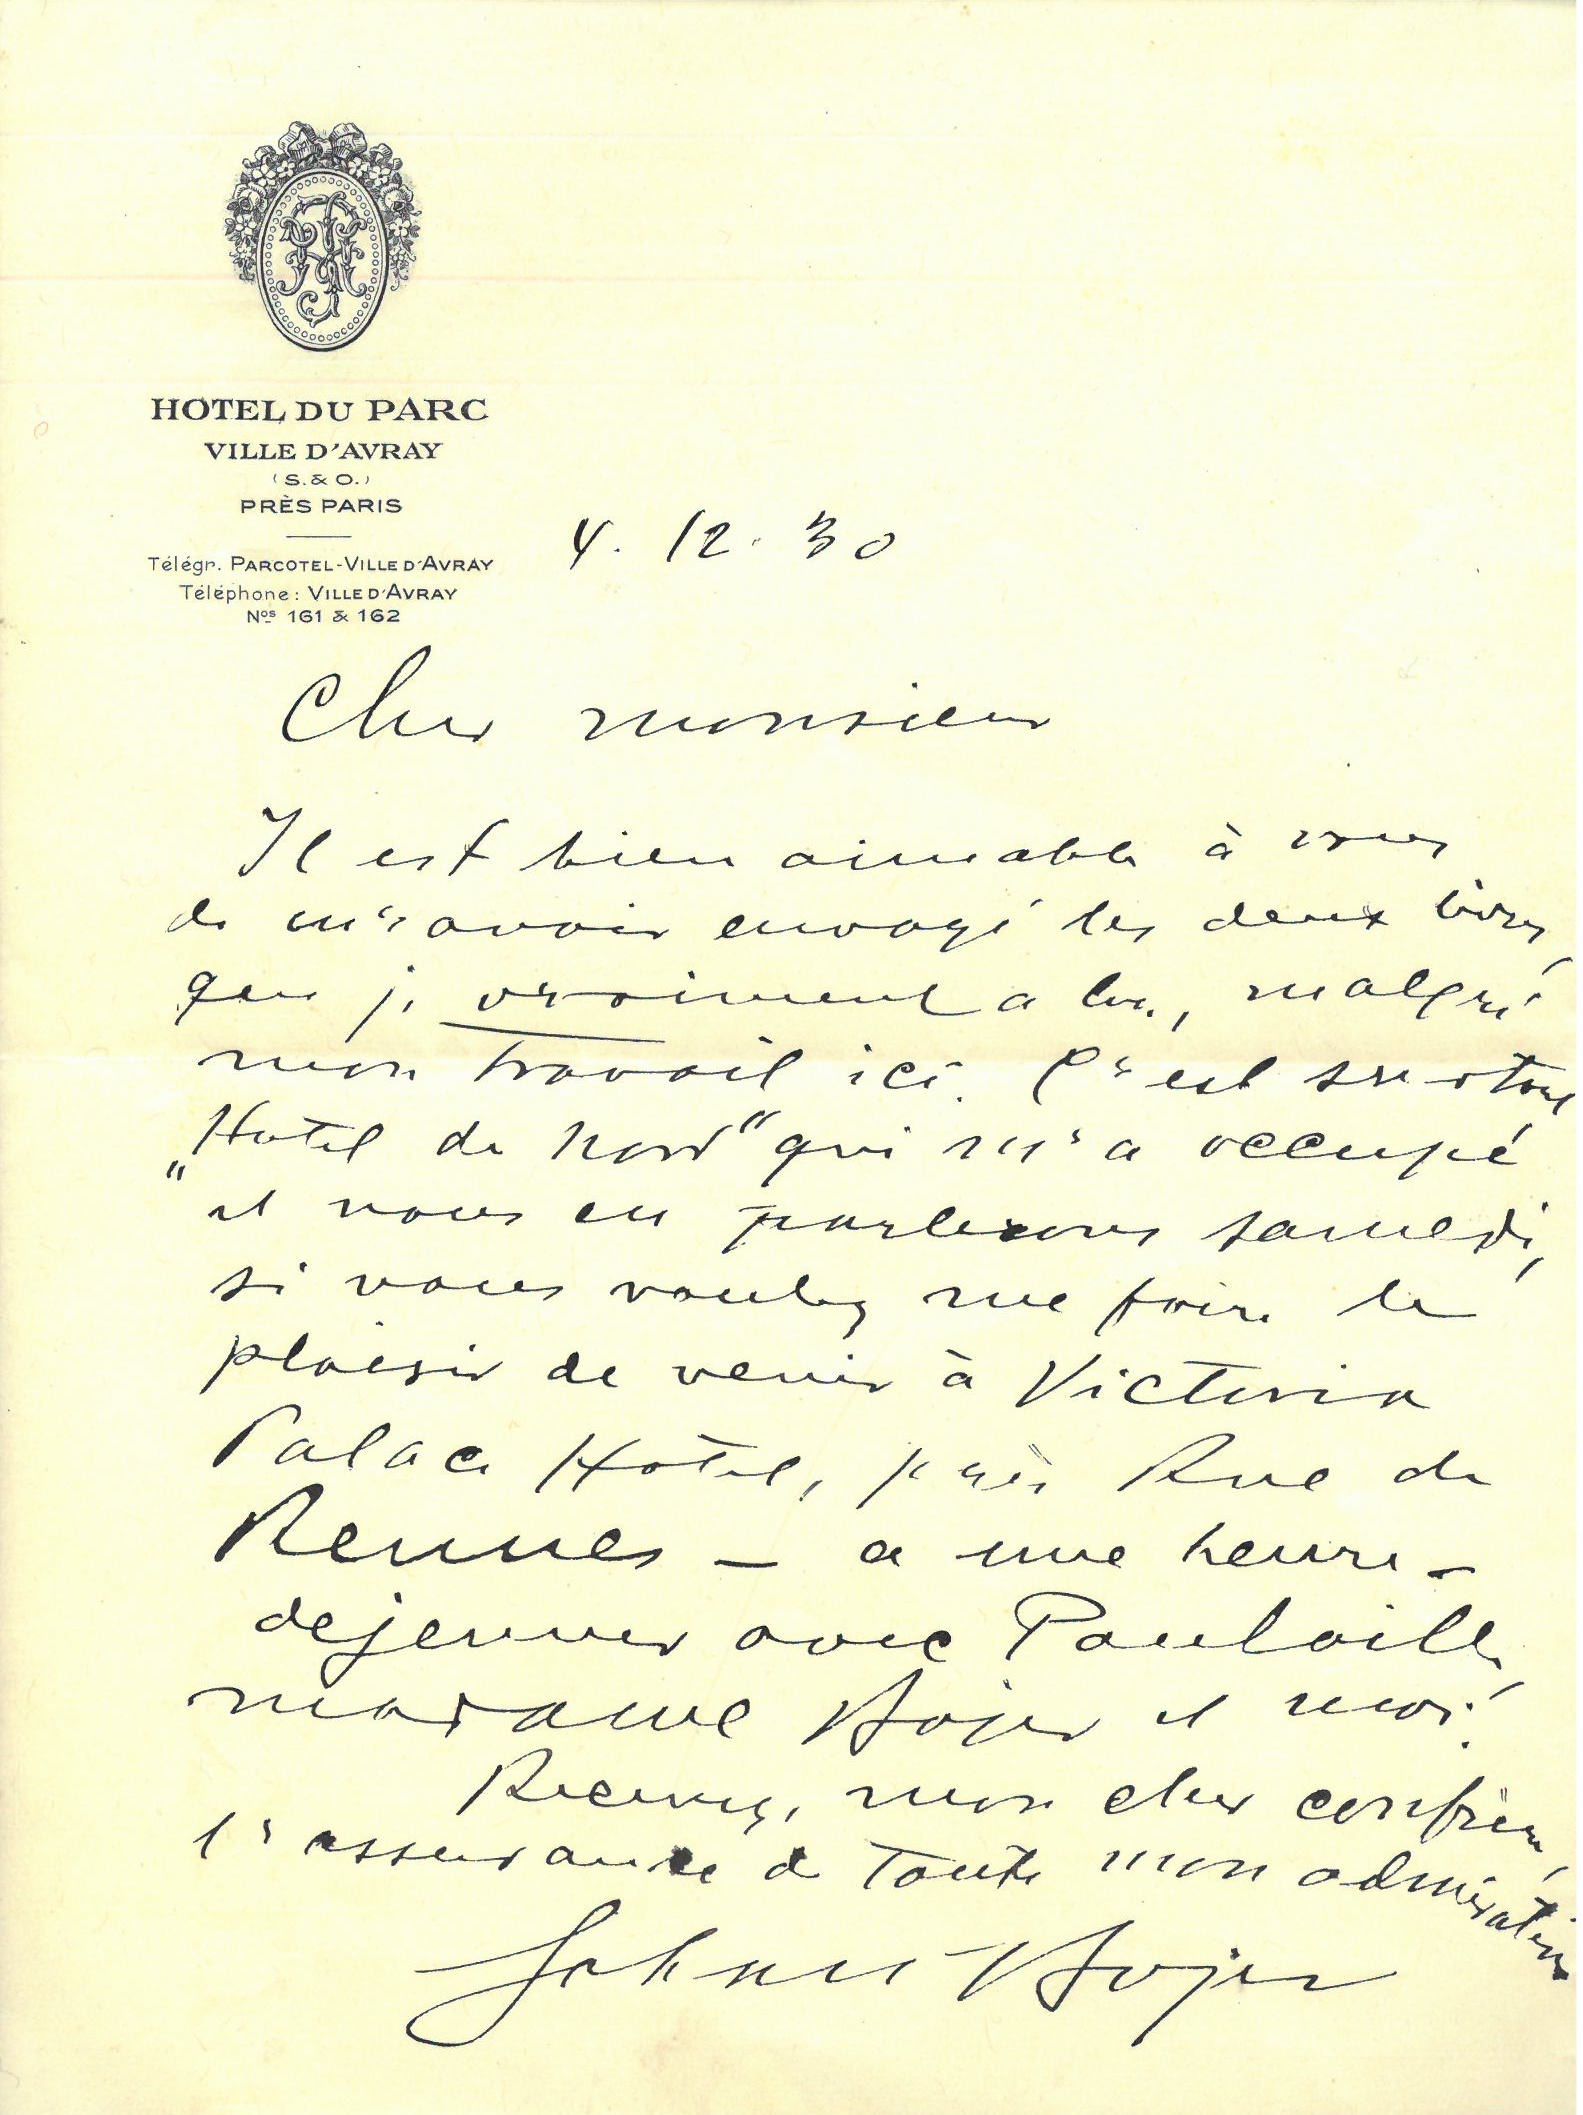 HOTEL DU PARC
VILLE D'AVRAY
(S. & O.)
PRÈS PARIS
Télégr. PARCOTEL-VILLE D'AVRAY
Téléphone: VILLE D'AVRAY
Nos 161 & 162
4. 12. 30
Cher monsieur
Il est bien aimable à vous
de m'avoir envoyé les deux livres,
que je vraiment a lu, malgré
mon travail ici. C'est surtout
„Hotel de Nord" qui m'a occupé
et nous en parlerons samedi,
si vous voulez me faire le
plaisir de venir à Victoria
Palace Hotel, près Rue de
Rennes – a une heure –
dejeuner avec Poulaille,
madame Bojer et moi!
Recevez, mon cher confrère,
l'assurance de toute mon admiration
Johan Bojer